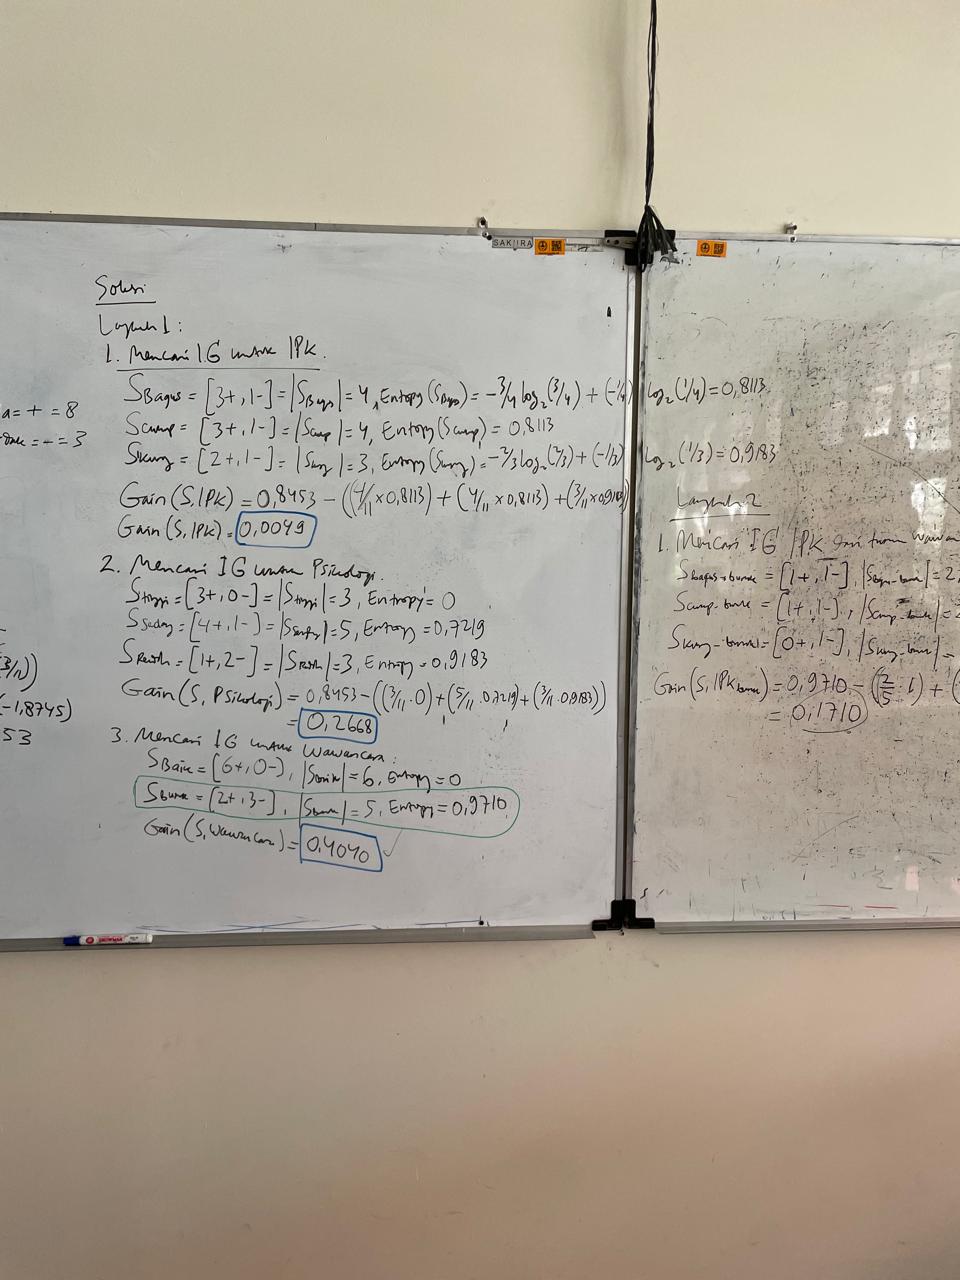 SAKURA
Solusi
Langkah 1:
1. Mencari IG untuk IPK.
a = + = 8
= - = 3
S Bagus = [3+, 1-] = |S Bagus| = 4, Entropy (S Bagus) = -3/4 log₂ (3/4) + (-1/4) log₂ (1/4) = 0,8113
S cukup = [3+, 1-] = |S cukup| = 4, Entropy (S cukup) = 0,8113
S kurang = [2+, 1-] = |S kurang| = 3, Entropy (S kurang) = -2/3 log₂ (2/3) + (-1/3) log₂ (1/3) = 0,9183
Gain (S, IPK) = 0,8453 - ((4/11 x 0,8113) + (4/11 x 0,8113) + (3/11 x 0,9183)
Gain (S, IPK) = 0,0049
2. Mencari IG untuk Psikologi.
S tinggi = [3+, 0-] = |S tinggi| = 3, Entropy = 0
S sedang = [4+, 1-] = |S sedang| = 5, Entropy = 0,7219
S Rendah = [1+, 2-] = |S Rendah| = 3, Entropy = 0,9183
Gain (S, Psikologi) = 0,8453 - ((3/11 . 0) + (5/11 . 0,7219) + (3/11 . 0,9183))
= 0,2668
3/11))
(-1,8745)
53
3. Mencari IG untuk Wawancara:
S Baik = [6+, 0-), |S baik| = 6, Entropy = 0
S Buruk = [2+, 3-], |S buruk| = 5, Entropy = 0,9710
Gain (S, Wawancara) = 0,4040
Langkah 2
1. Mencari IG IPK dari
S bagus-buruk = [1+, 1-], |S bagus-buruk| = 2,
S cukup-buruk = [1+, 1-], |S cukup-buruk| = 2
S kurang-buruk = [0+, 1-], |S kurang-buruk| =
Gain (S, IPK buruk) = 0,9710 - ((2/5 . 1) + (
= 0,1710
SNOWMAN